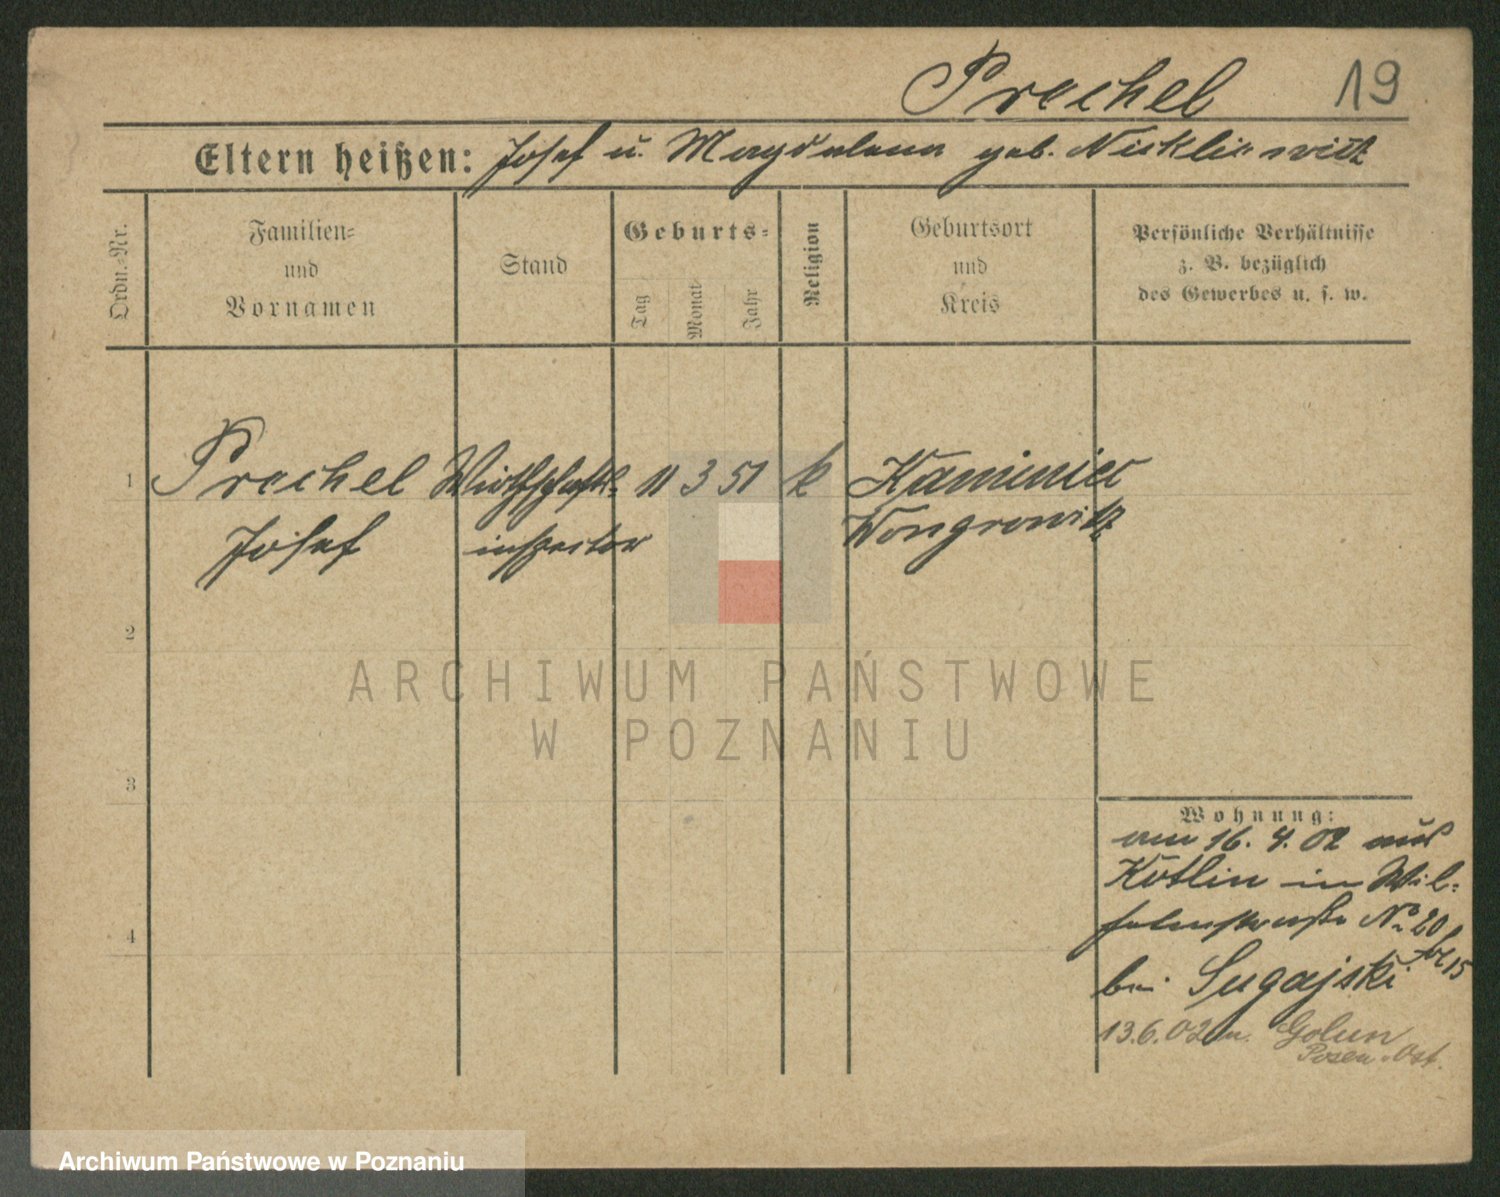 Prechel 19
Eltern heißen: Josef u. Magdalena geb.
Ordn.-Nr.
Familien-
und
Vornamen
Stand
Geburts-
Tag
Monat
Jahr
Religion
Geburtsort
und
Kreis
Persönliche Verhältnisse
z. B. bezüglich
des Gewerbes u. s. w.
1 Prechel Wirthschafts- 11 3 51 k Kaminiec
Josef inspector Wongrowitz
2
3
4
Wohnung:
am 16. 4. 02 aus
Kotlin in Wil-
helmstraße No 20
bei Sugajski
13.6.02 n. Golun
Posen-Ost.
ARCHIWUM PAŃSTWOWE
W POZNANIU
Archiwum Państwowe w Poznaniu